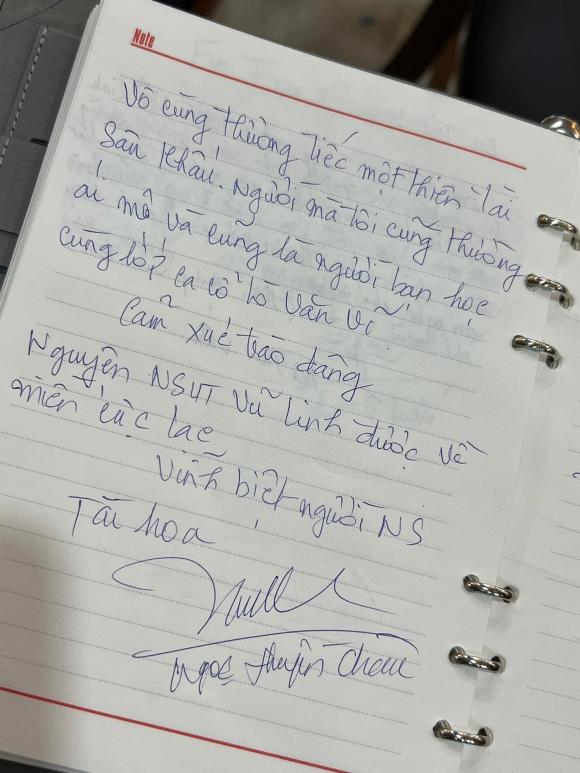 Note
Vô cùng thương tiếc một thiên tài
sân khấu. Người mà tôi cũng thường
ái mộ và cũng là người bạn học
cùng lớp ca cổ lò Văn Vĩ.
Cảm xúc trào dâng
Nguyện NSUT Vũ Linh được về
miền cực lạc
Vĩnh biệt người NS
Tài hoa
Ngọc Huyền Châu